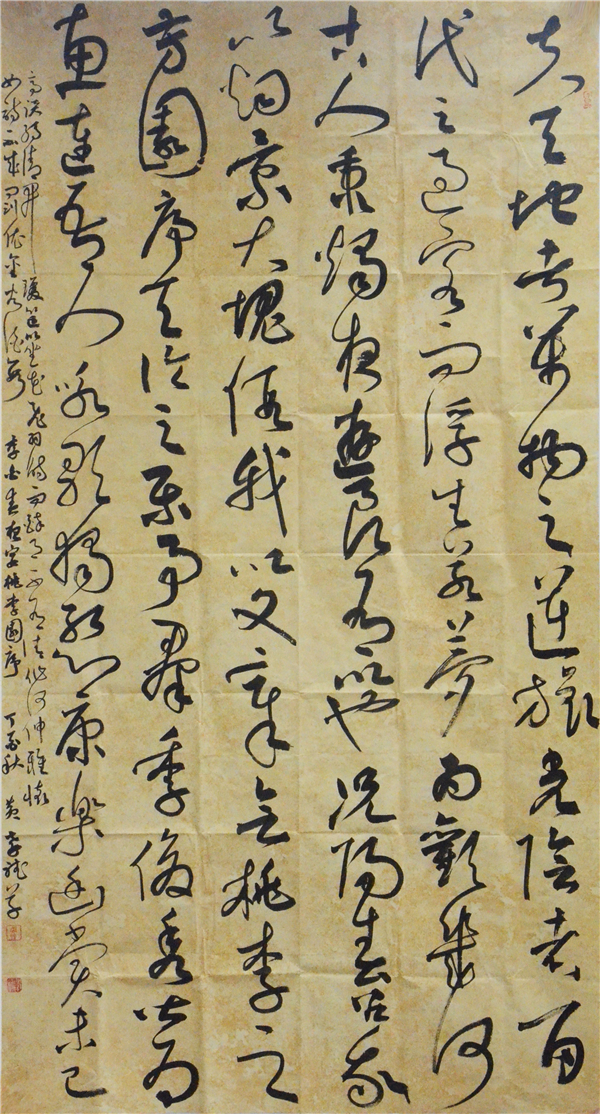 夫天地者萬物之逆旅光陰者百
代之過客而浮生若夢為歡幾何
古人秉燭夜遊良有以也況陽春召我
以烟景大塊假我以文章會桃李之
芳園序天倫之樂事羣季俊秀皆為
惠連吾人詠歌獨慚康樂幽賞未已
高談轉清開瓊筵以坐花飛羽觴而醉月不有佳作何伸雅懷
如詩不成罰依金谷酒數 李白春夜宴桃李園序 丁酉秋 黃